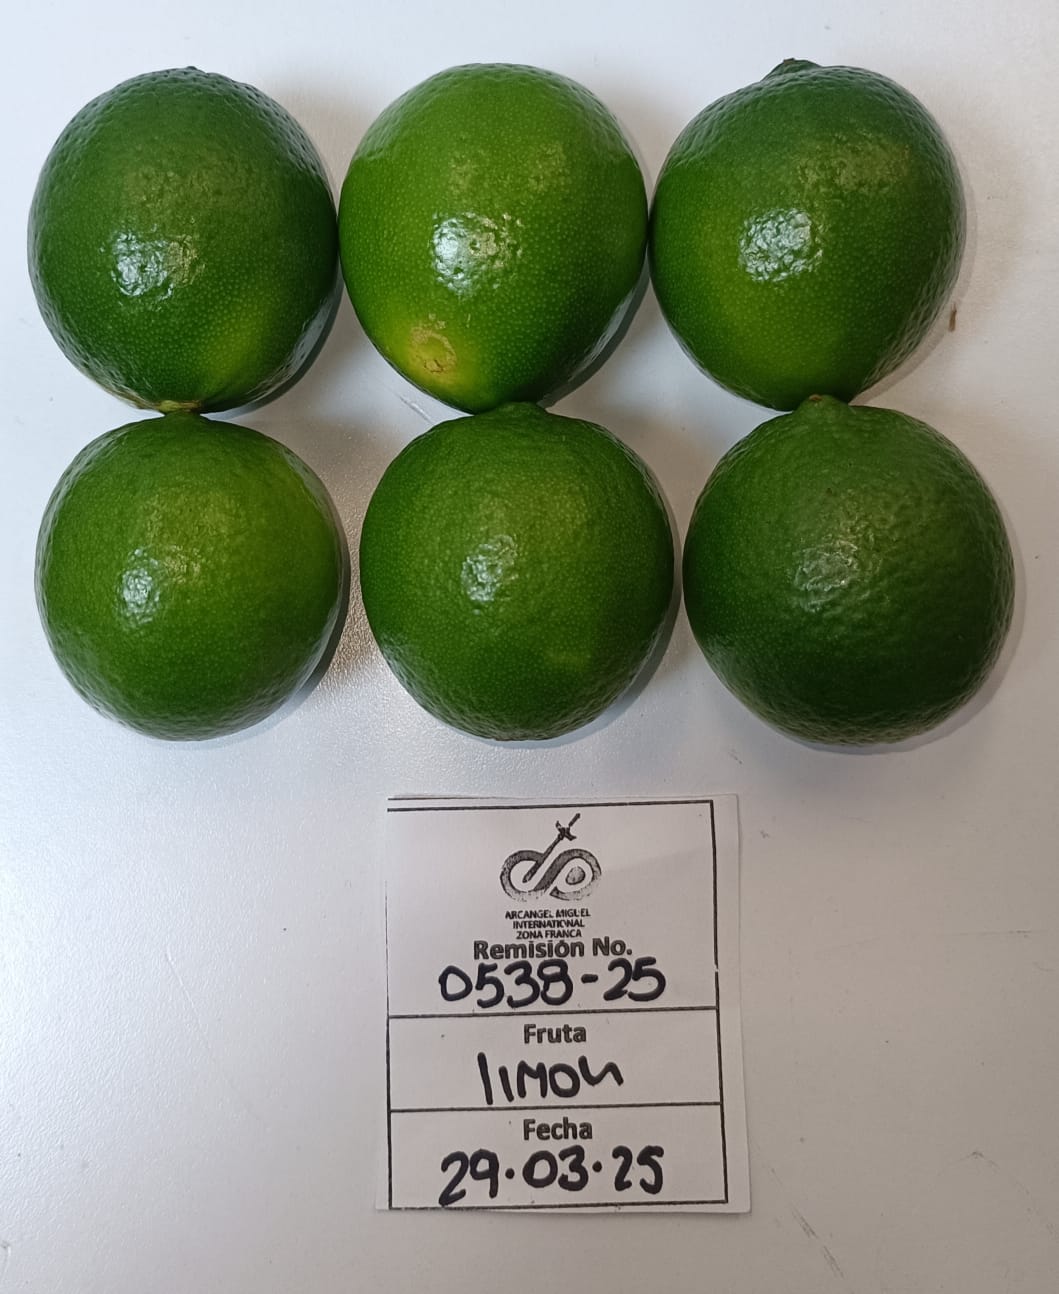 ARCANGEL MIGUEL
INTERNATIONAL
ZONA FRANCA
Remisión No.
0538-25
Fruta
limon
Fecha
29.03.25